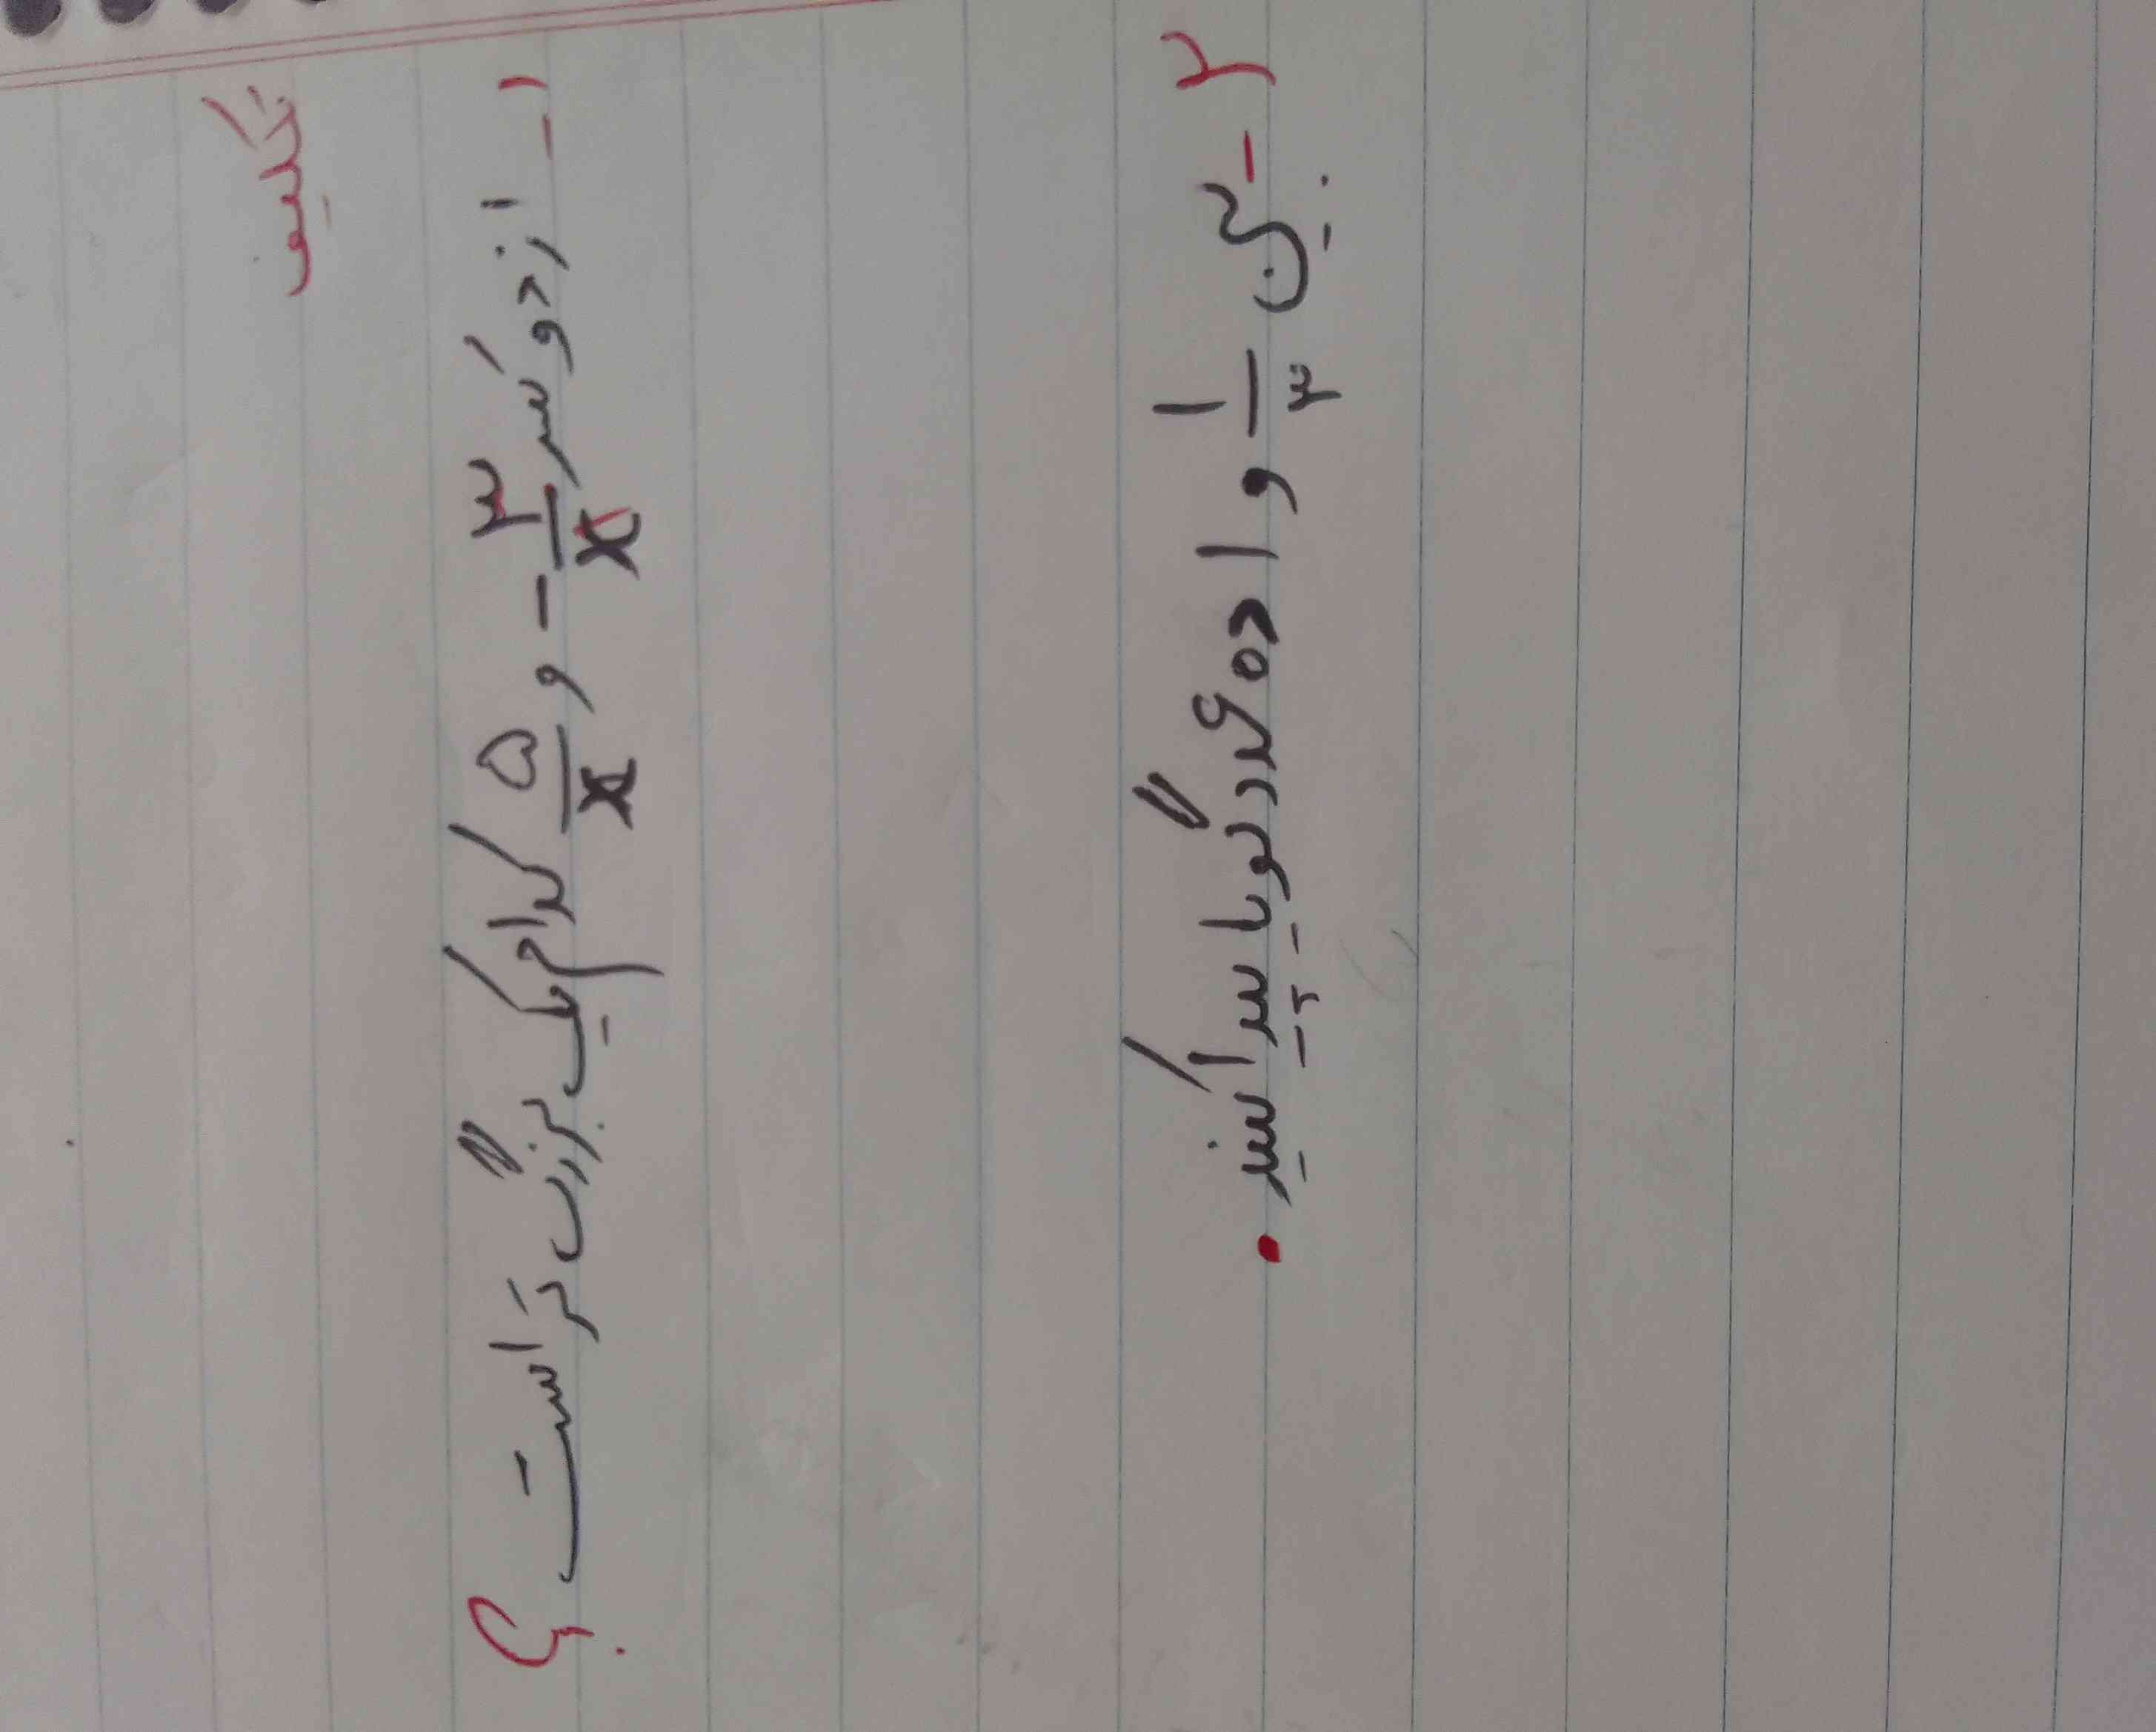 تکلیف
۱- از دو کسر ۳/x - و ۵/x کدام یک بزرگ تر است ؟
۲- بین ۱/۳ و ۱ ده عدد گویا پیدا کنید.